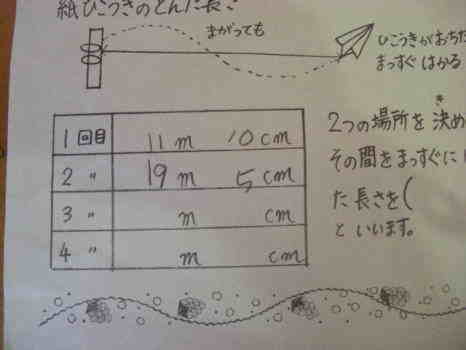 紙ひこうきのとんだ長さ
まがっても
ひこうきがおちた
まっすぐはかる
1回目 11m 10cm
2 〃 19m 5cm
3 〃 m cm
4 〃 m cm
き
2つの場所を決め
その間をまっすぐに
た長さを(
といいます。